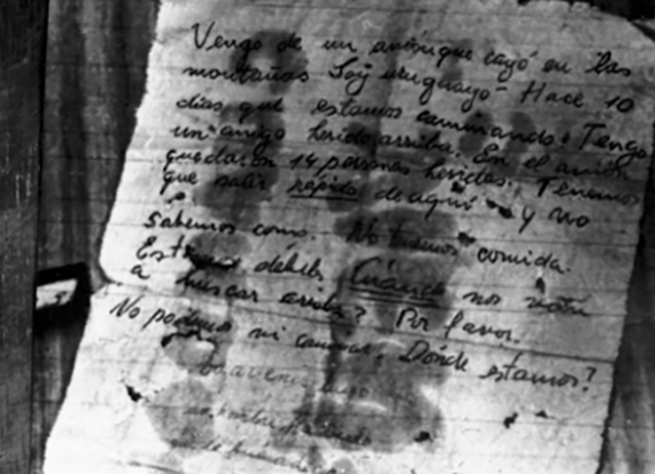 Vengo de un avión que cayó en las
montañas Soy uruguayo Hace 10
dias que estamos caminando. Tengo
un amigo herido arriba. En el avión
quedaron 14 personas heridas. Tenemos
que salir rápido de aquí y no
sabemos como. No tenemos comida.
Estamos débiles. Cuándo nos van
a buscar arriba? Por favor.
No podemos ni caminar. Dónde estamos?